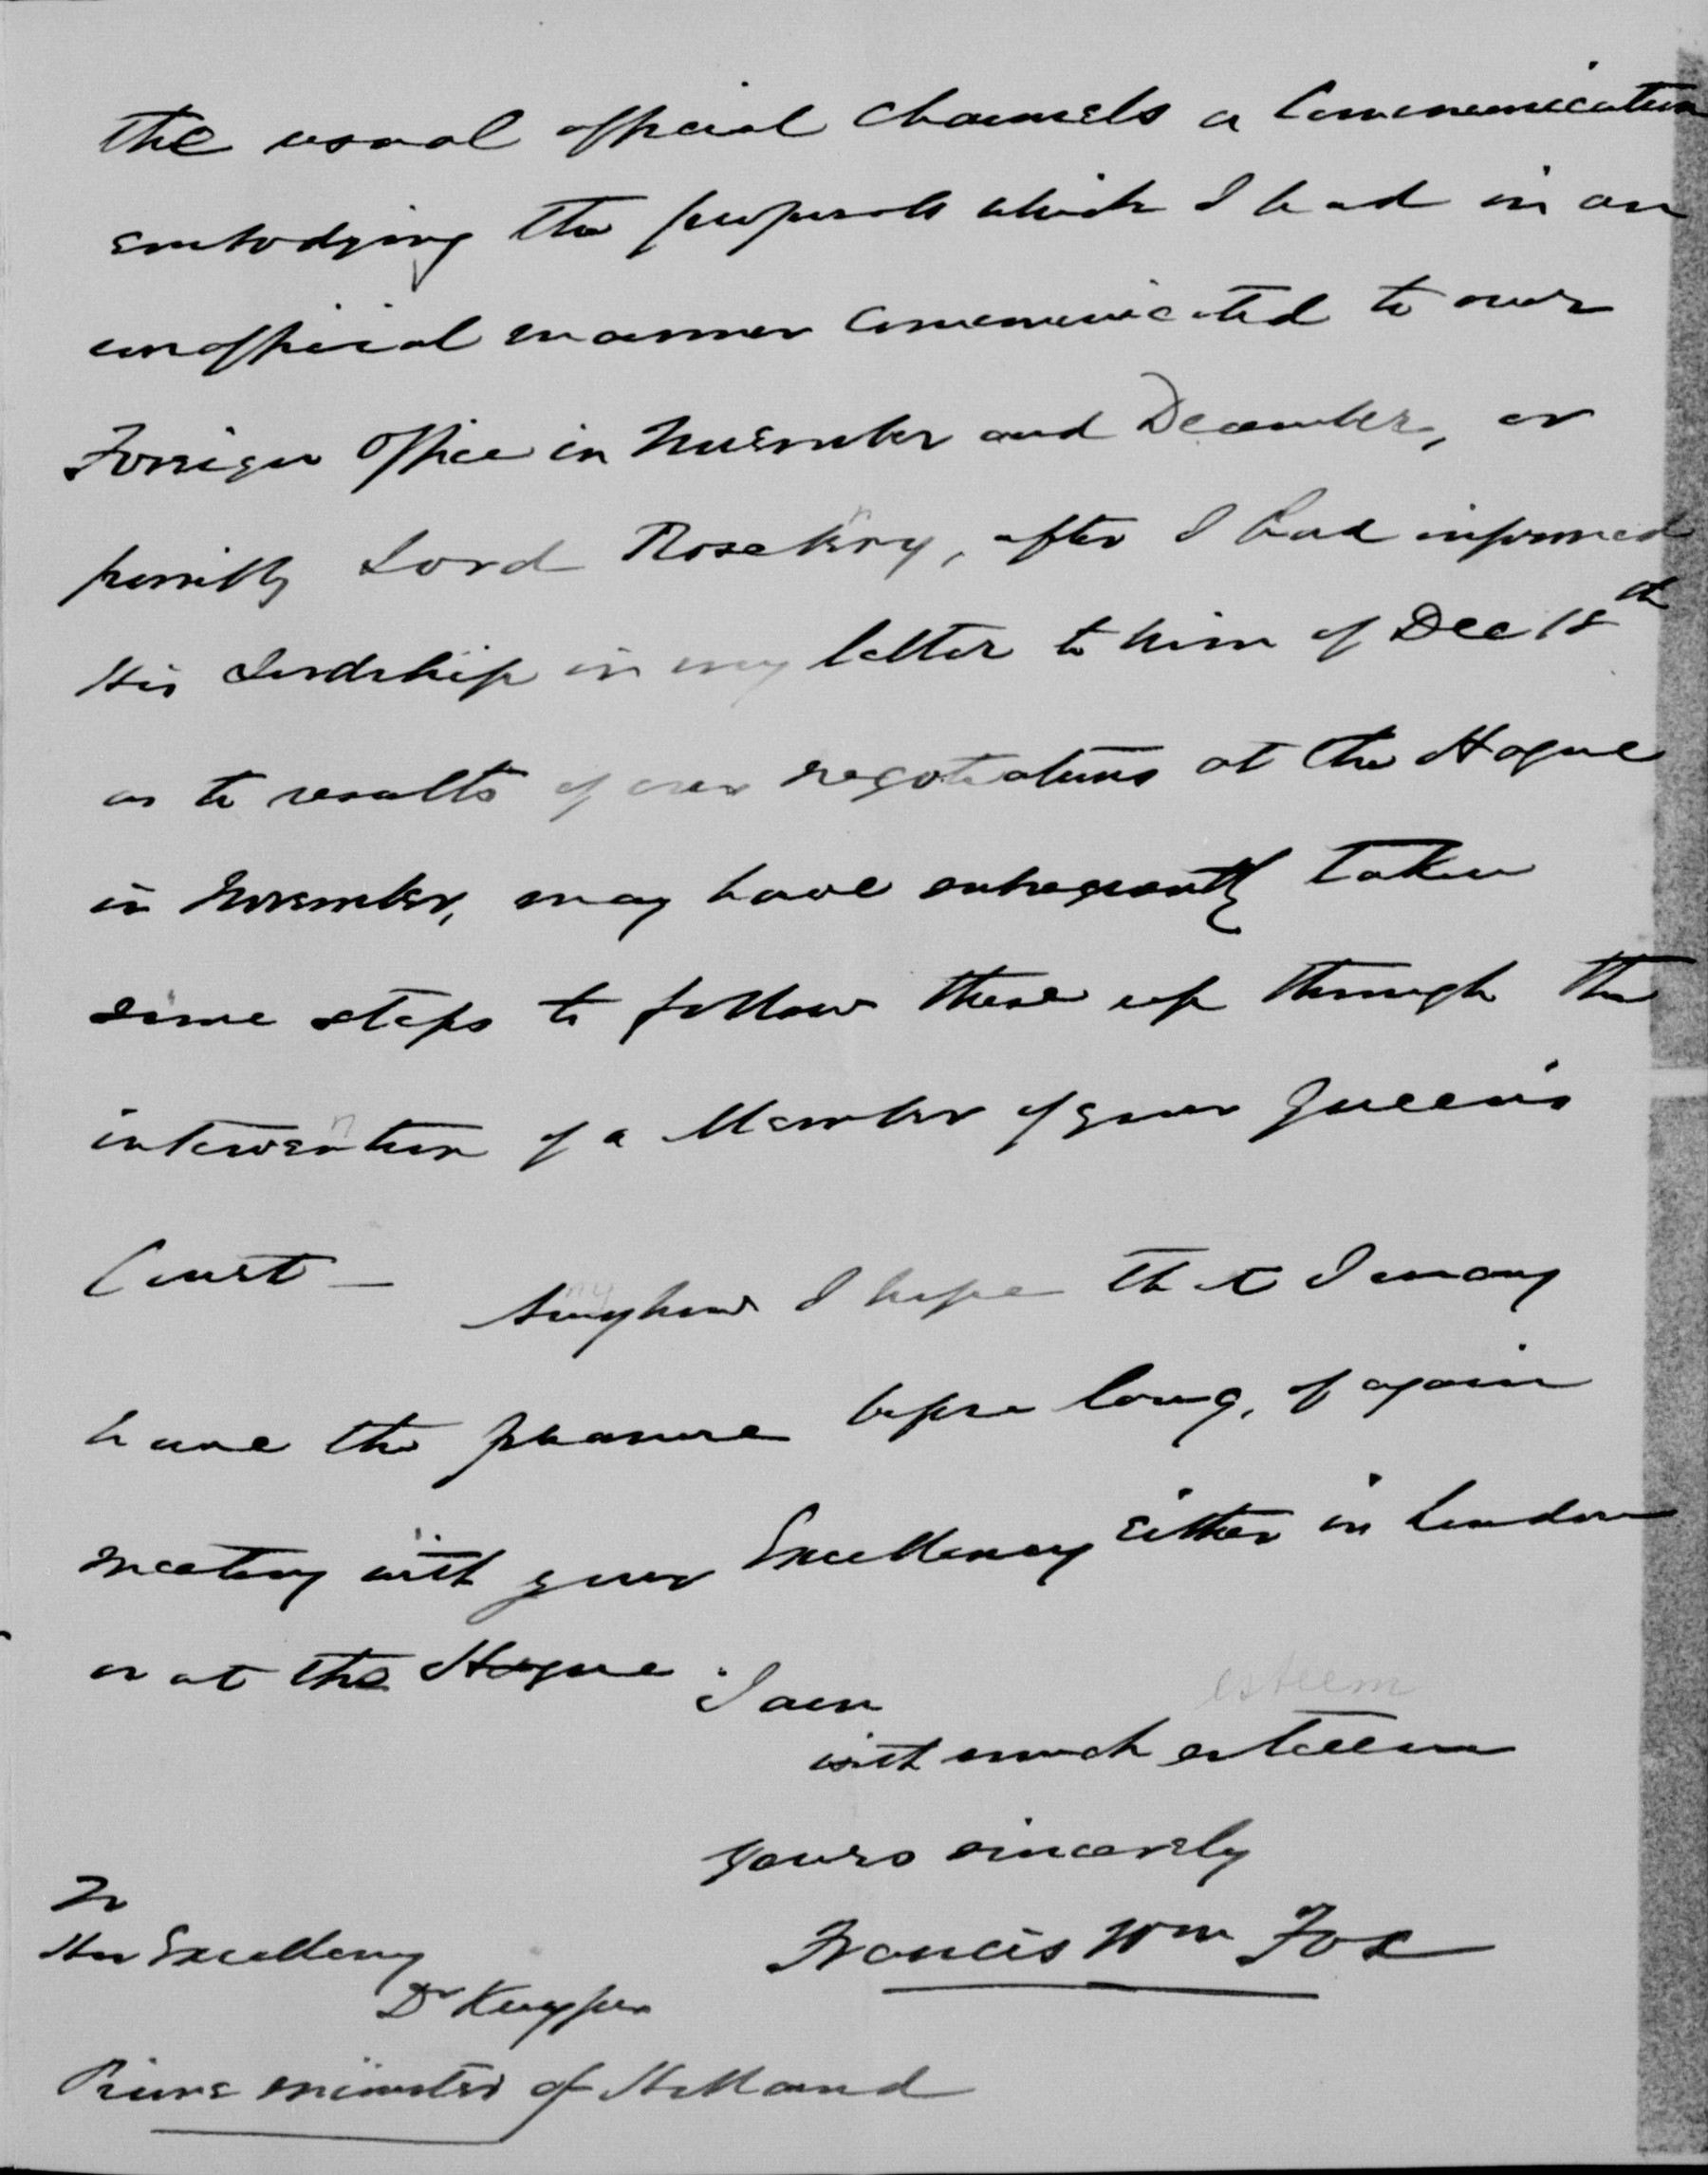 the usual official channels a Communication
embodying the proposals which I had in an
unofficial manner communicated to our
Foreign Office in November and December, or
possibly Lord Rosebery, after I had informed
His Lordship in my letter to him of Dec 18th
as to results of our negotiations at the Hague
in November, may have subsequently taken
some steps to follow these up through the
intervention of a Member of your Queen's
Court — Anyhow I hope that I may
have the pleasure before long, of again
meeting with your Excellency either in London
or at the Hague.
I am
esteem
with much esteem
yours sincerely
Francis Wm Fox
To
His Excellency
Dr Kuyper
Prime minister of Holland